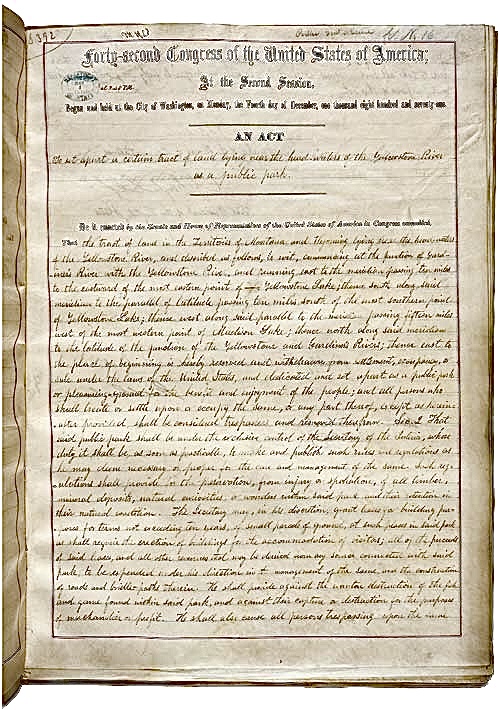 8392
Forty-second Congress of the United States of America;
At the Second Session,
Begun and held at the City of Washington, on Monday, the Fourth day of December, one thousand eight hundred and seventy-one.
AN ACT
To set apart a certain tract of land lying near the head-waters of the Yellowstone River
as a public park.
Be it enacted by the Senate and House of Representatives of the United States of America in Congress assembled,
That the tract of land in the Territories of Montana and Wyoming lying near the head-waters
of the Yellowstone River, and described as follows, to wit, commencing at the junction of Gard-
iner's River with the Yellowstone River, and running east to the meridian passing ten miles
to the eastward of the most eastern point of Yellowstone Lake; thence south along said
meridian to the parallel of latitude passing ten miles south of the most southern point
of Yellowstone Lake; thence west along said parallel to the meridian passing fifteen miles
west of the most western point of Madison Lake; thence north along said meridian
to the latitude of the junction of the Yellowstone and Gardiner's Rivers; thence east to
the place of beginning is hereby reserved and withdrawn from settlement, occupancy, or
sale under the laws of the United States, and dedicated and set apart as a public park
or pleasuring-ground for the benefit and enjoyment of the people; and all persons who
shall locate or settle upon or occupy the same, or any part thereof, except as herein-
after provided, shall be considered trespassers and removed therefrom. Sec. 2 That
said public park shall be under the exclusive control of the Secretary of the Interior, whose
duty it shall be, as soon as practicable, to make and publish such rules and regulations as
he may deem necessary or proper for the care and management of the same. Such reg-
ulations shall provide for the preservation, from injury or spoliation, of all timber,
mineral deposits, natural curiosities, or wonders within said park, and their retention in
their natural condition. The Secretary may, in his discretion, grant leases for building pur-
poses for terms not exceeding ten years, of small parcels of ground, at such places in said park
as shall require the erection of buildings for the accommodation of visitors; all of the proceeds
of said leases, and all other revenues that may be derived from any source connected with said
park, to be expended under his direction in the management of the same, and the construction
of roads and bridle-paths therein. He shall provide against the wanton destruction of the fish
and game found within said park, and against their capture or destruction for the purposes
of merchandise or profit. He shall also cause all persons trespassing upon the same